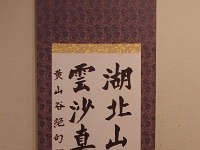 湖北山
雲沙真
黄山谷絶句